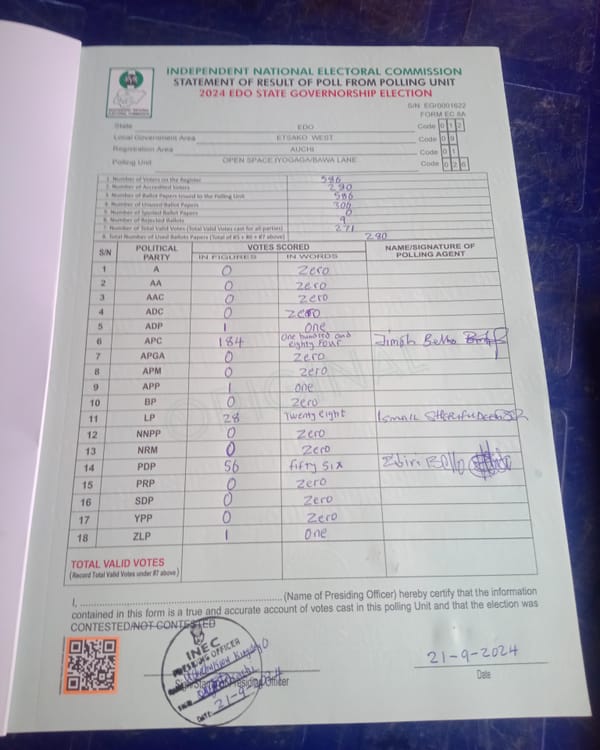 INDEPENDENT NATIONAL ELECTORAL COMMISSION
STATEMENT OF RESULT OF POLL FROM POLLING UNIT
2024 EDO STATE GOVERNORSHIP ELECTION
S/N EG/0001622
FORM EC 8A
State EDO Code 0 1 2
Local Government Area ETSAKO WEST Code 0 9
Registration Area AUCHI Code 0 1
Polling Unit OPEN SPACE,IYOGAGA/BAWA LANE Code 0 2 6
1. Number of Voters on the Register 586
2. Number of Accredited Voters 280
3. Number of Ballot Papers Issued to the Polling Unit 586
4. Number of Unused Ballot Papers 306
5. Number of Spoiled Ballot Papers 0
6. Number of Rejected Ballots 9
7. Number of Total Valid Votes (Total Valid Votes cast for all parties) 271
8. Total Number of Used Ballots Papers (Total of #5 + #6 + #7 above) 280
S/N POLITICAL PARTY VOTES SCORED NAME/SIGNATURE OF POLLING AGENT
IN FIGURES IN WORDS
1 A 0 Zero
2 AA 0 Zero
3 AAC 0 Zero
4 ADC 0 Zero
5 ADP 1 One
6 APC 184 One hundred and eighty Four Jimoh Bello
7 APGA 0 Zero
8 APM 0 Zero
9 APP 1 One
10 BP 0 Zero
11 LP 28 Twenty eight
12 NNPP 0 Zero
13 NRM 0 Zero
14 PDP 56 Fifty Six Bello
15 PRP 0 Zero
16 SDP 0 Zero
17 YPP 0 Zero
18 ZLP 1 One
ORIGINAL
TOTAL VALID VOTES
(Record Total Valid Votes under #7 above)
I, ........................................ (Name of Presiding Officer) hereby certify that the information
contained in this form is a true and accurate account of votes cast in this polling Unit and that the election was
CONTESTED/NOT CONTESTED
INEC
PRESIDING OFFICER
DATE: 21-9-2024
21-9-2024
Date